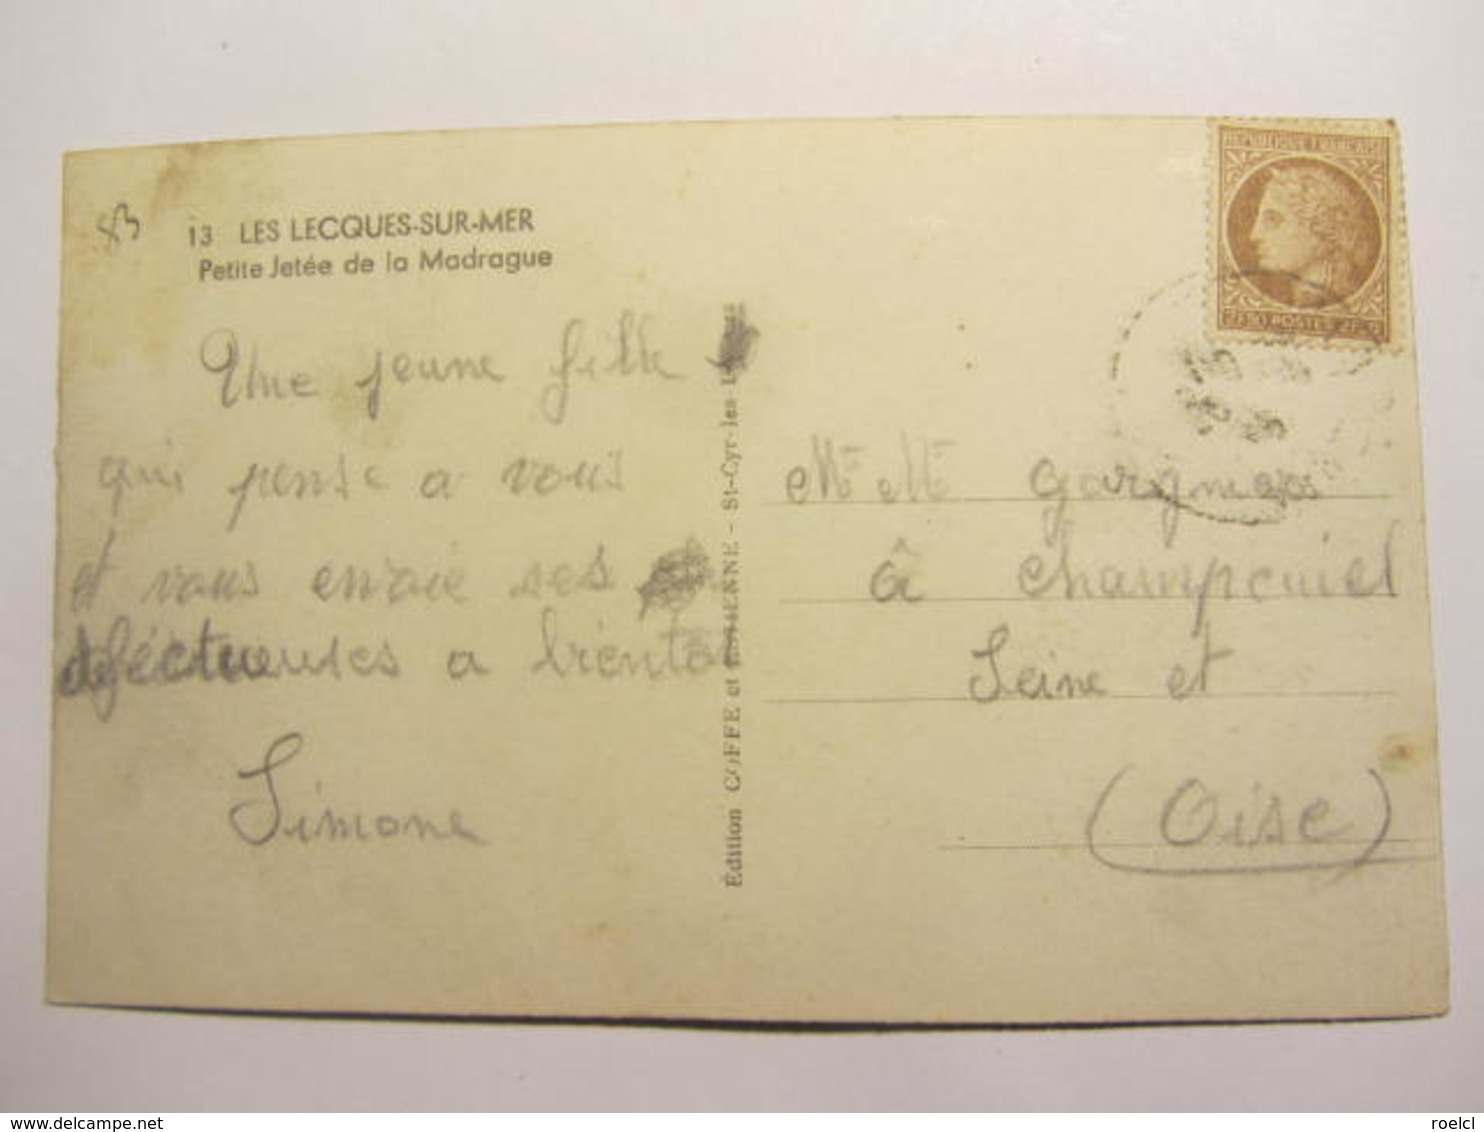 83
13 LES LECQUES-SUR-MER
Petite Jetée de la Madrague
Une jeune fille
qui pense a vous
et vous envoie ses
affectueuses a bientôt
Simone
Édition COFFE et ESSIENNE - St-Cyr-les-Lecques
REPUBLIQUE FRANÇAISE
2F50 POSTES 2F50
Mr Mme
à Champeniel
Seine et
(Oise)
delcampe.net
roelcl